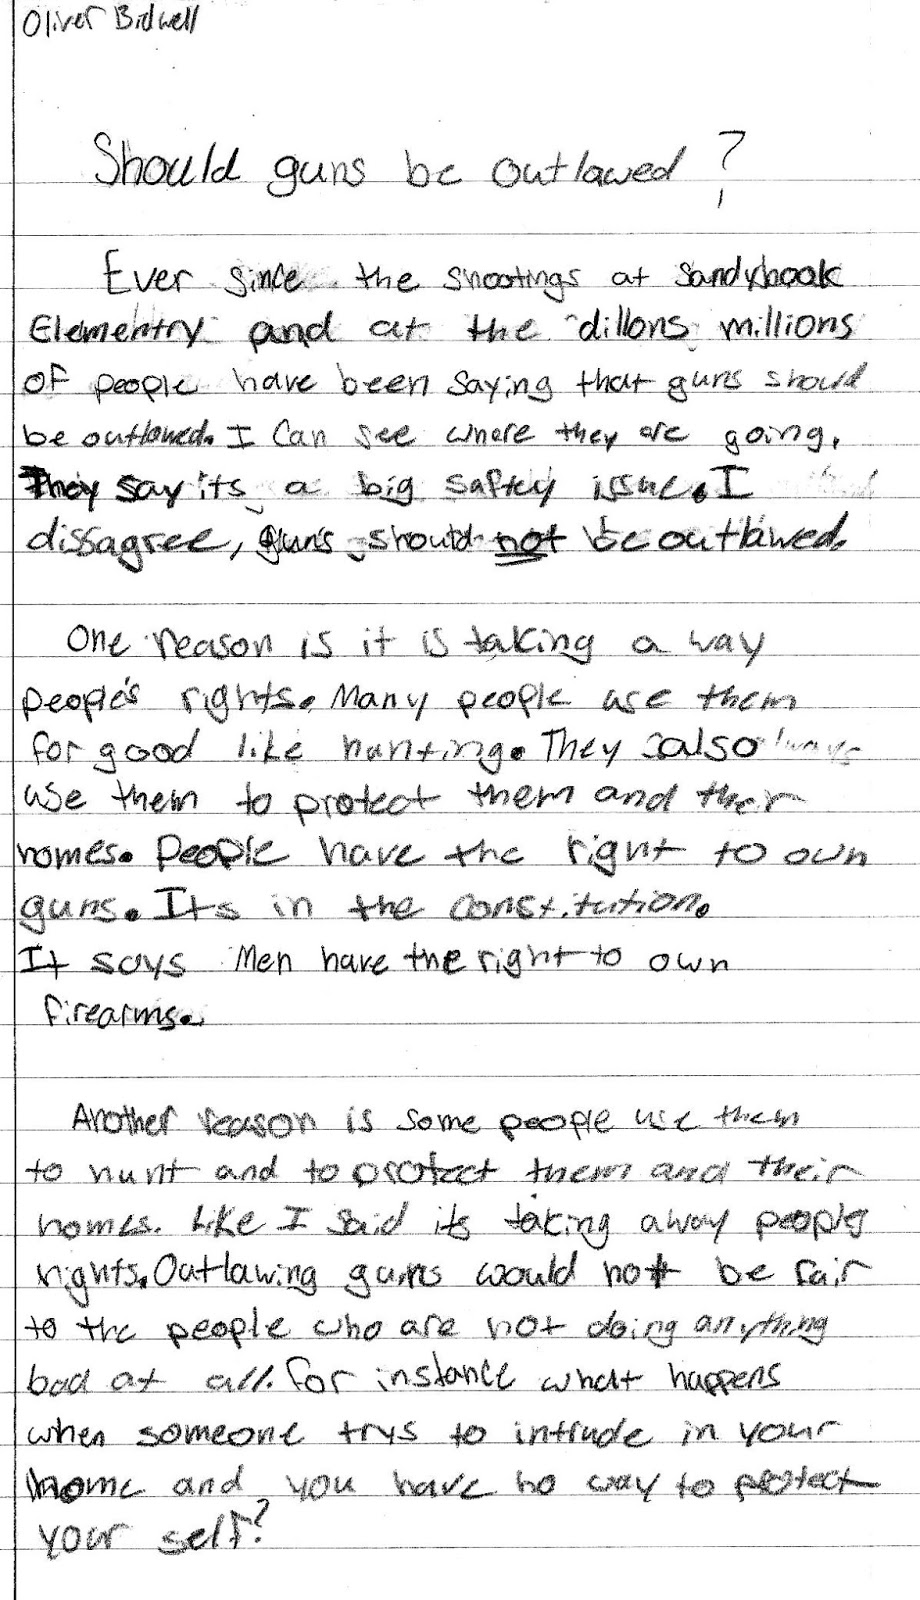 Oliver Bidwell
Should guns be outlawed?
Ever since the shootings at Sandyhook
Elementry and at the dillons millions
of people have been saying that guns should
be outlawed. I can see where they are going.
They say its a big saftey issue. I
dissagree, guns should not be outlawed.
One reason is it is taking a way
people's rights. Many people use them
for good like hunting. They also
use them to protect them and their
homes. People have the right to own
guns. Its in the constitution.
It says Men have the right to own
firearms.
Another reason is some people use them
to hunt and to protect them and their
homes. Like I said its taking away people
rights. Outlawing guns would not be fair
to the people who are not doing anything
bad at all. For instance what happens
when someone trys to intrude in your
home and you have no way to protect
your self?